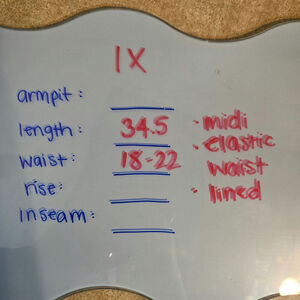 1X
armpit:
length: 34.5
waist: 18-22
rise:
inseam:
· midi
· elastic
waist
· lined